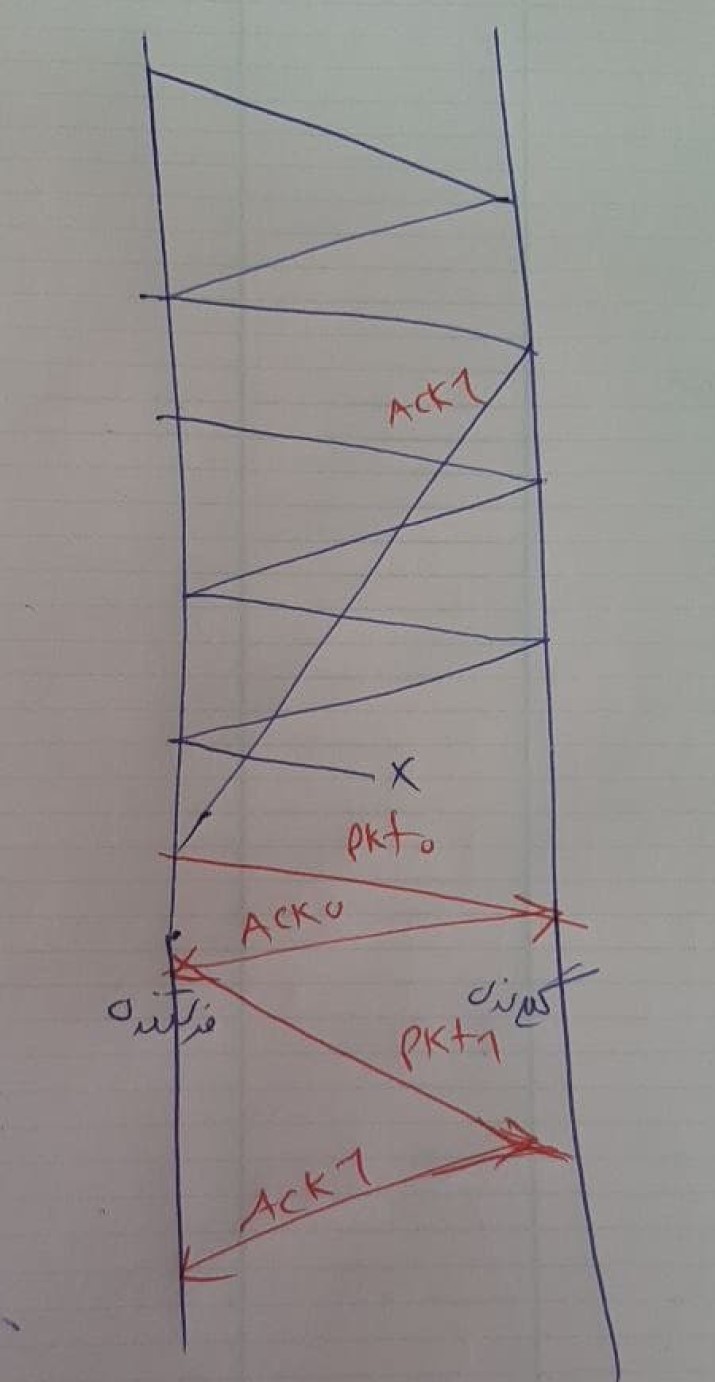 Ack1
X
pkt0
Ack0
فرستنده
گیرنده
pkt1
Ack1